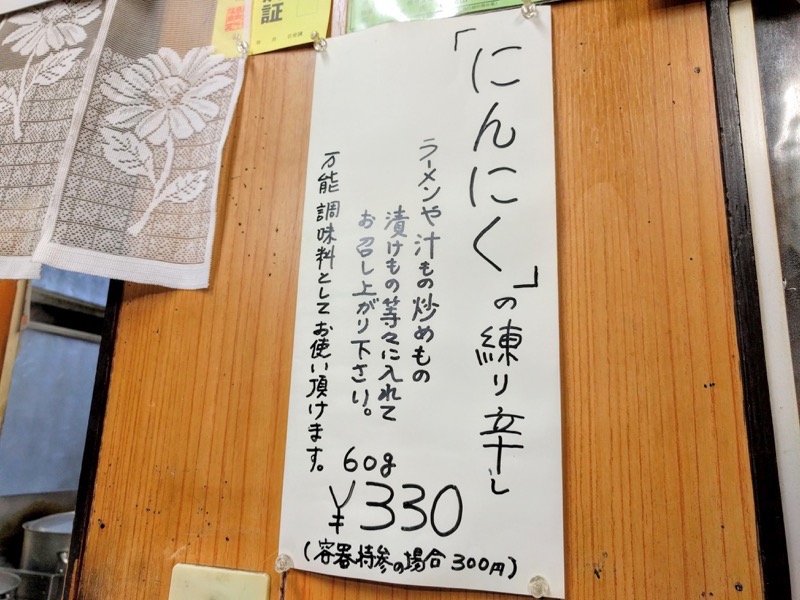 「にんにく」の練り辛し
ラーメンや汁もの炒めもの
漬けもの等々に入れて
お召し上がり下さい。
万能調味料としてお使い頂けます。
60g
¥330
(容器持参の場合300円)
証